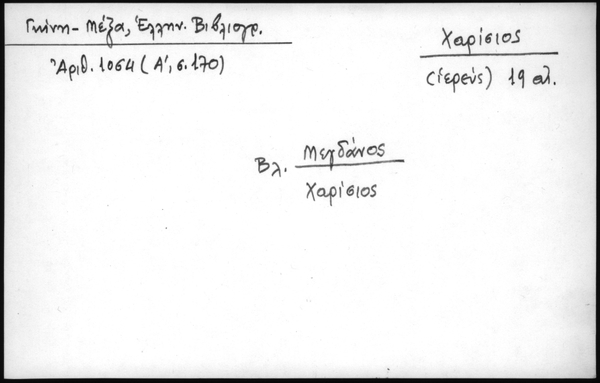 Γκίνη - Μέξα, Ἑλλην. Βιβλιογρ.
Ἀριθ. 1064 (Α', σ. 170)
Χαρίσιος
(ἱερεύς) 19 αἰ.
Βλ. Μεγδάνος
Χαρίσιος